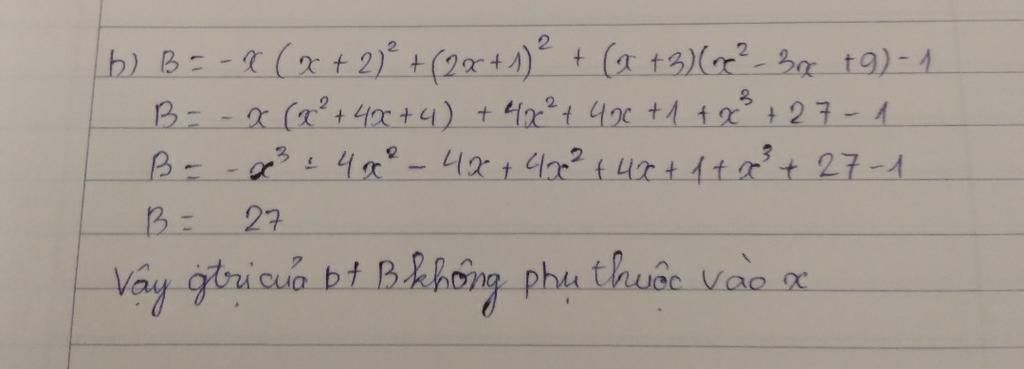 b) B = -x(x+2)² + (2x+1)² + (x+3)(x² - 3x + 9) - 1
B = -x(x² + 4x + 4) + 4x² + 4x + 1 + x³ + 27 - 1
B = -x³ - 4x² - 4x + 4x² + 4x + 1 + x³ + 27 - 1
B = 27
Vậy gtrị của bt B không phụ thuộc vào x